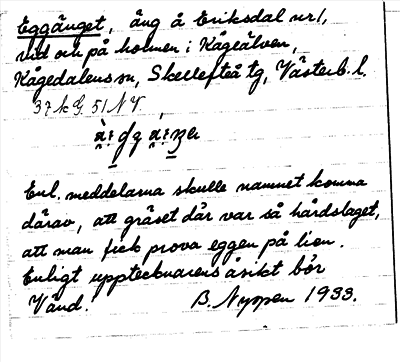 Eggänget, äng å Eriksdal nr 1,
vid och på holmen i Kågeälven,
Kågedalens sn, Skellefteå tg, Västerb. l.
37 k G. 51 N V.
Enl. meddelarna skulle namnet komma
därav, att gräset där var så hårdslaget,
att man fick prova eggen på lien.
Enligt upptecknarens åsikt bör
Vänd.
B. Nyman 1933.